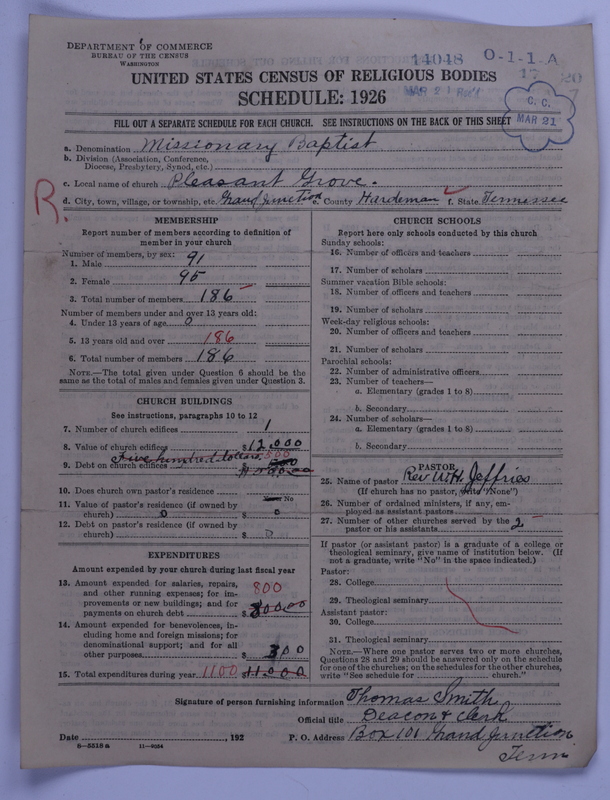 DEPARTMENT OF COMMERCE
BUREAU OF THE CENSUS
WASHINGTON
14048 O-1-1-A
17 20
7
MAR 21 Rec'd
C. C.
MAR 21
UNITED STATES CENSUS OF RELIGIOUS BODIES
SCHEDULE: 1926
FILL OUT A SEPARATE SCHEDULE FOR EACH CHURCH. SEE INSTRUCTIONS ON THE BACK OF THIS SHEET
a. Denomination Missionary Baptist
b. Division (Association, Conference,
Diocese, Presbytery, Synod, etc.)
c. Local name of church Pleasant Grove.
R. d. City, town, village, or township, etc. Grand Junction e. County Hardeman f. State Tennessee
MEMBERSHIP
Report number of members according to definition of
member in your church
Number of members, by sex:
1. Male 91
2. Female 95
3. Total number of members 186
Number of members under and over 13 years old:
4. Under 13 years of age 0
5. 13 years old and over 186
6. Total number of members 186
NOTE.—The total given under Question 6 should be
same as the total of males and females given under Question 3.
CHURCH BUILDINGS
See instructions, paragraphs 10 to 12
7. Number of church edifices 1
8. Value of church edifices $12,000
Five hundred dollars 500
9. Debt on church edifices
10. Does church own pastor's residence No
11. Value of pastor's residence (if owned by
church) 0 $ 0
12. Debt on pastor's residence (if owned by
church) $ 0
EXPENDITURES
Amount expended by your church during last fiscal year
13. Amount expended for salaries, repairs,
and other running expenses; for im-
provements or new buildings; and for
payments on church debt 800 $ 800.00
14. Amount expended for benevolences, in-
cluding home and foreign missions; for
denominational support; and for all
other purposes $ 300
15. Total expenditures during year 1100 $11000
CHURCH SCHOOLS
Report here only schools conducted by this church
Sunday schools:
16. Number of officers and teachers
17. Number of scholars
Summer vacation Bible schools:
18. Number of officers and teachers
19. Number of scholars
Week-day religious schools:
20. Number of officers and teachers
21. Number of scholars
Parochial schools:
22. Number of administrative officers
23. Number of teachers—
a. Elementary (grades 1 to 8)
b. Secondary
24. Number of scholars—
a. Elementary (grades 1 to 8)
b. Secondary
PASTOR
25. Name of pastor Rev W.H. Jeffries
(If church has no pastor, write "None")
26. Number of ordained ministers, if any, em-
ployed as assistant pastors
27. Number of other churches served by the
pastor or his assistants 2
If pastor (or assistant pastor) is a graduate of a college or
theological seminary, give name of institution below. (If
not a graduate, write "No" in the space indicated.)
Pastor:
28. College
29. Theological seminary
Assistant pastor:
30. College
31. Theological seminary
NOTE.—Where one pastor serves two or more churches,
Questions 28 and 29 should be answered only on the schedule
for one of the churches; on the schedules for the other churches,
write "See schedule for church."
Signature of person furnishing information Thomas Smith
Official title Deacon & Clerk
Date , 192 P. O. Address Box 101 Grand Junction
Tenn
6—5518a 11—9264